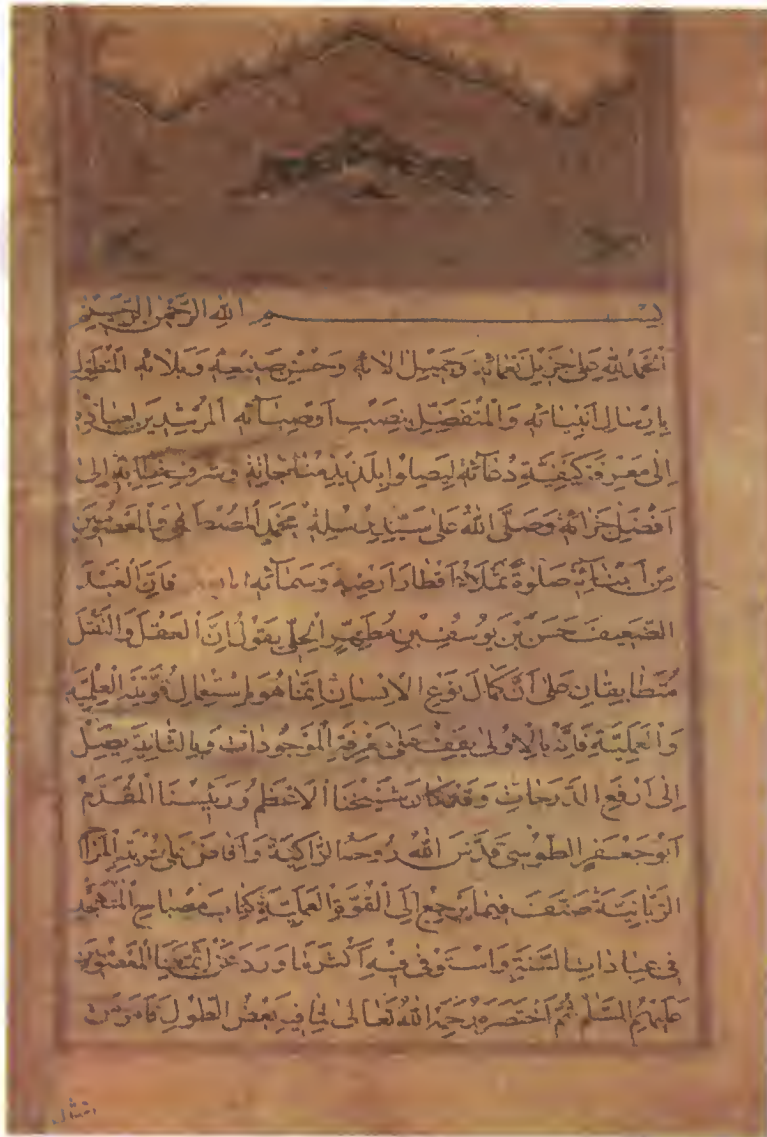 بِسْمِ اللهِ الرَّحْمٰنِ الرَّحِيْمِ
اَلْحَمْدُ لِلّٰهِ عَلٰى جَزِيْلِ نَعْمَائِهِ وَجَمِيْلِ اٰلَائِهِ وَحُسْنِ صَنِيْعِهِ وَبَلَائِهِ الْمُتَطَوِّلِ
بِاِرْسَالِ اَنْبِيَائِهِ وَالْمُتَفَضِّلِ بِنَصْبِ اَوْصِيَائِهِ الْمُرْشِدِيْنَ لِعِبَادِهِ
اِلٰى مَعْرِفَةِ كَيْفِيَّةِ دُعَائِهِ لِيَصِلُوا بِلَذِيْذِ مُنَاجَاتِهِ وَشَرَفِ خِطَابِهِ اِلٰى
اَفْضَلِ جَزَائِهِ وَصَلَّى اللهُ عَلٰى سَيِّدِ رُسُلِهِ مُحَمَّدٍ الْمُصْطَفٰى وَالْمَعْصُوْمِيْنَ
مِنْ اَبْنَائِهِ صَلٰوةً تَمْلَاُ اَقْطَارَ اَرْضِهِ وَسَمَائِهِ فَاِنَّ الْعَبْدَ
الضَّعِيْفَ حَسَنَ بْنَ يُوْسُفَ بْنِ مُطَهَّرٍ الْحِلِّيَّ يَقُوْلُ اِنَّ الْعَقْلَ وَالنَّقْلَ
مُتَطَابِقَانِ عَلٰى اَنَّ كَمَالَ نَوْعِ الْاِنْسَانِ اِنَّمَا هُوَ بِاسْتِعْمَالِ قُوَّتَيْهِ الْعِلْمِيَّةِ
وَالْعَمَلِيَّةِ فَاِنَّهُ بِالْاُوْلٰى يَقِفُ عَلٰى مَعْرِفَةِ الْمَوْجُوْدَاتِ وَبِالثَّانِيَةِ يَصِلُ
اِلٰى اَرْفَعِ الدَّرَجَاتِ وَقَدْ كَانَ شَيْخُنَا الْاَعْظَمُ وَرَئِيْسُنَا الْمُقَدَّمُ
اَبُوْ جَعْفَرٍ الطُّوْسِيُّ قَدَّسَ اللهُ رُوْحَهُ الزَّاكِيَةَ وَاَفَاضَ عَلٰى تُرْبَتِهِ الْمَرَاحِمَ
الرَّبَّانِيَّةَ صَنَّفَ فِيْمَا يَرْجِعُ اِلَى الْقُوَّةِ الْعَمَلِيَّةِ كِتَابَ مِصْبَاحِ الْمُتَهَجِّدِ
فِيْ عِبَادَاتِ السَّنَةِ وَاسْتَوْفٰى فِيْهِ اَكْثَرَ مَا وَرَدَ عَنْ اَئِمَّتِنَا الْمَعْصُوْمِيْنَ
عَلَيْهِمُ السَّلَامُ ثُمَّ اخْتَصَرَهُ رَحِمَهُ اللهُ تَعَالٰى لِمَا فِيْهِ بَعْضُ الطُّوْلِ فَاَمَرْتَ